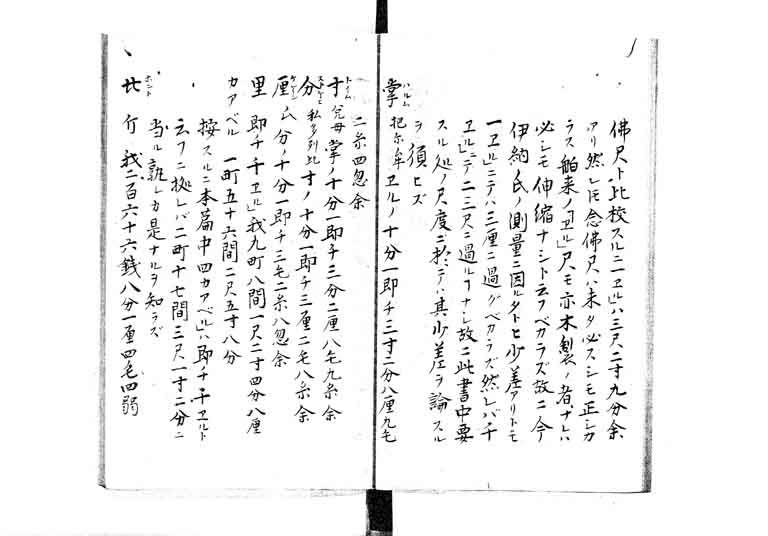 佛尺ト比校スルニ一ヱル」ハ三尺二寸九分余
アリ然レドモ念佛尺ハ未タ必スシモ正シカ
ラス舶来ノ「ヱル」尺モ亦木製ノ者ナレハ
必シモ伸縮ナシト云フベカラズ故ニ今
伊納氏ノ測量ニ因ルタトヒ少差アリトモ
一ヱル」ニテハ三厘ニ過グベカラズ然レバ千
ヱル」ニテ二三尺ニ過ルヿナシ故ニ此書中要
スル処ノ尺度ニ於テハ其少差ヲ論スル
ヲ須ヒズ
掌 ハルム 把尓牟 ヱルノ十分一即チ三寸二分八厘九毛
二糸四忽余
寸 ドイム 掌ノ十分一即チ三分二厘八毛九糸余
分 寸ノ十分一即チ三厘二毛八糸余
厘 分ノ十分一即チ三毛二糸八忽余
里 即チ千ヱル」我九町八間一尺二寸四分八厘
カアベル 一町五十六間二尺五寸八分
按スルニ本篇中四カアベル」ハ即チ千ヱルト
云フニ拠レバ二町十七間三尺一寸二分ニ
当ル孰レカ是ナルヲ知ラズ
ホント 我二百六十六銭八分一厘四毛四弱